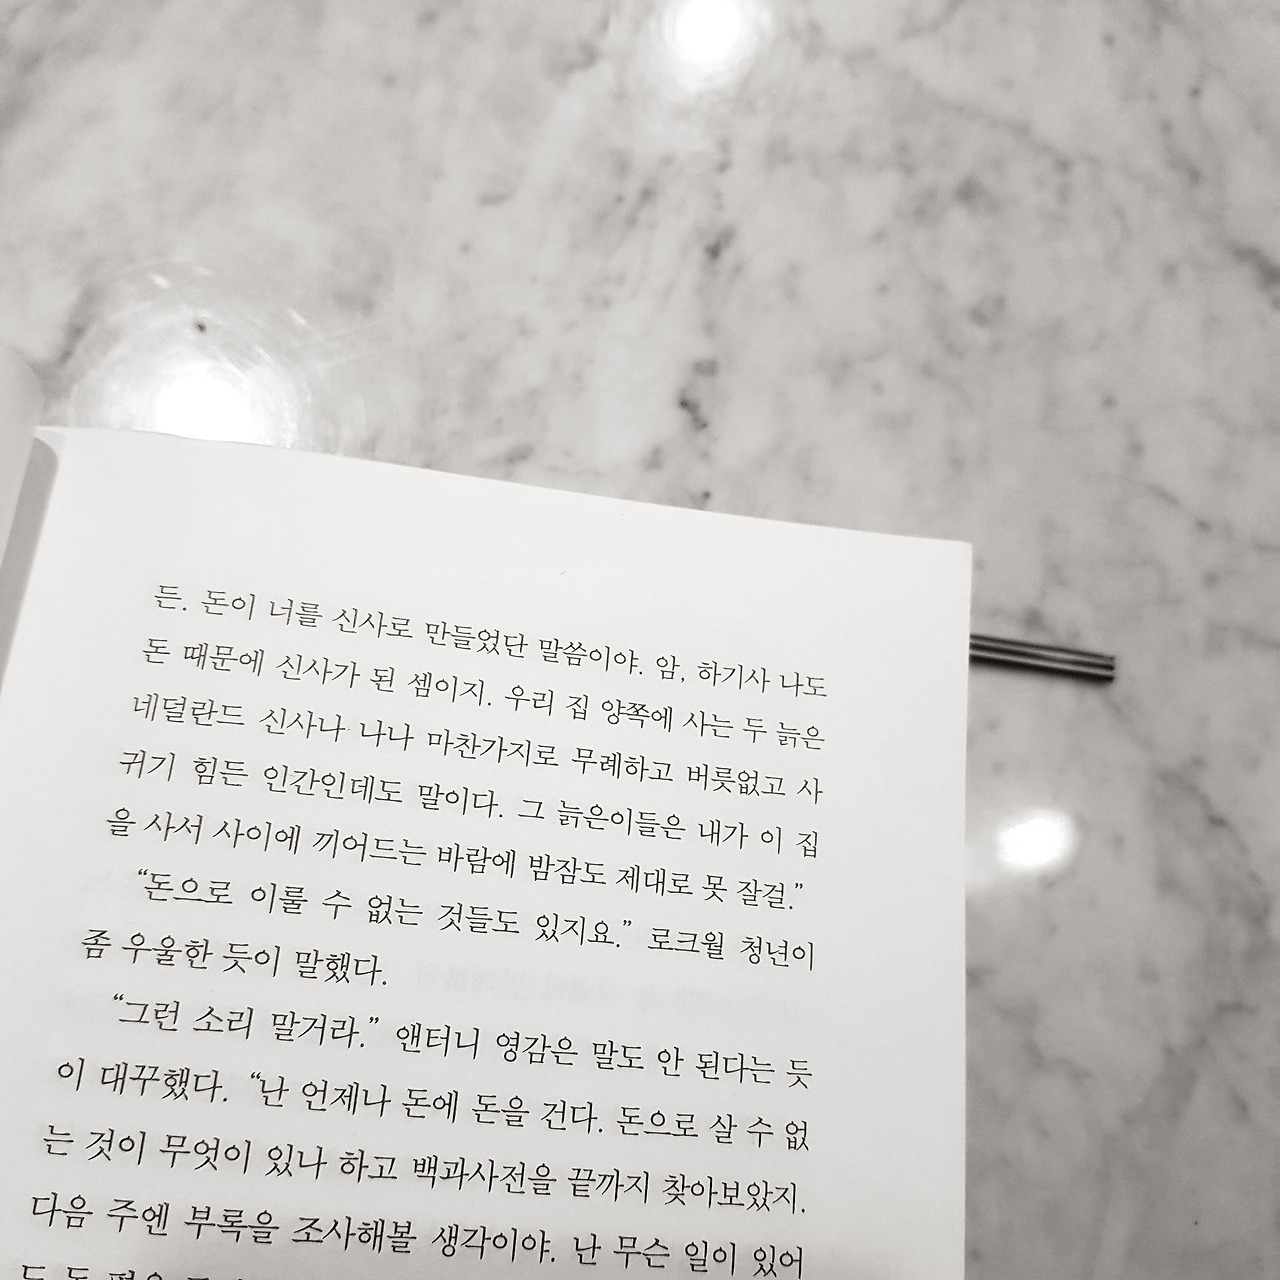 든. 돈이 너를 신사로 만들었단 말씀이야. 암, 하기사 나도
돈 때문에 신사가 된 셈이지. 우리 집 양쪽에 사는 두 늙은
네덜란드 신사나 나나 마찬가지로 무례하고 버릇없고 사
귀기 힘든 인간인데도 말이다. 그 늙은이들은 내가 이 집
을 사서 사이에 끼어드는 바람에 밤잠도 제대로 못 잘걸.”
“돈으로 이룰 수 없는 것들도 있지요.” 로크월 청년이
좀 우울한 듯이 말했다.
“그런 소리 말거라.” 앤터니 영감은 말도 안 된다는 듯
이 대꾸했다. “난 언제나 돈에 돈을 건다. 돈으로 살 수 없
는 것이 무엇이 있나 하고 백과사전을 끝까지 찾아보았지.
다음 주엔 부록을 조사해볼 생각이야. 난 무슨 일이 있어